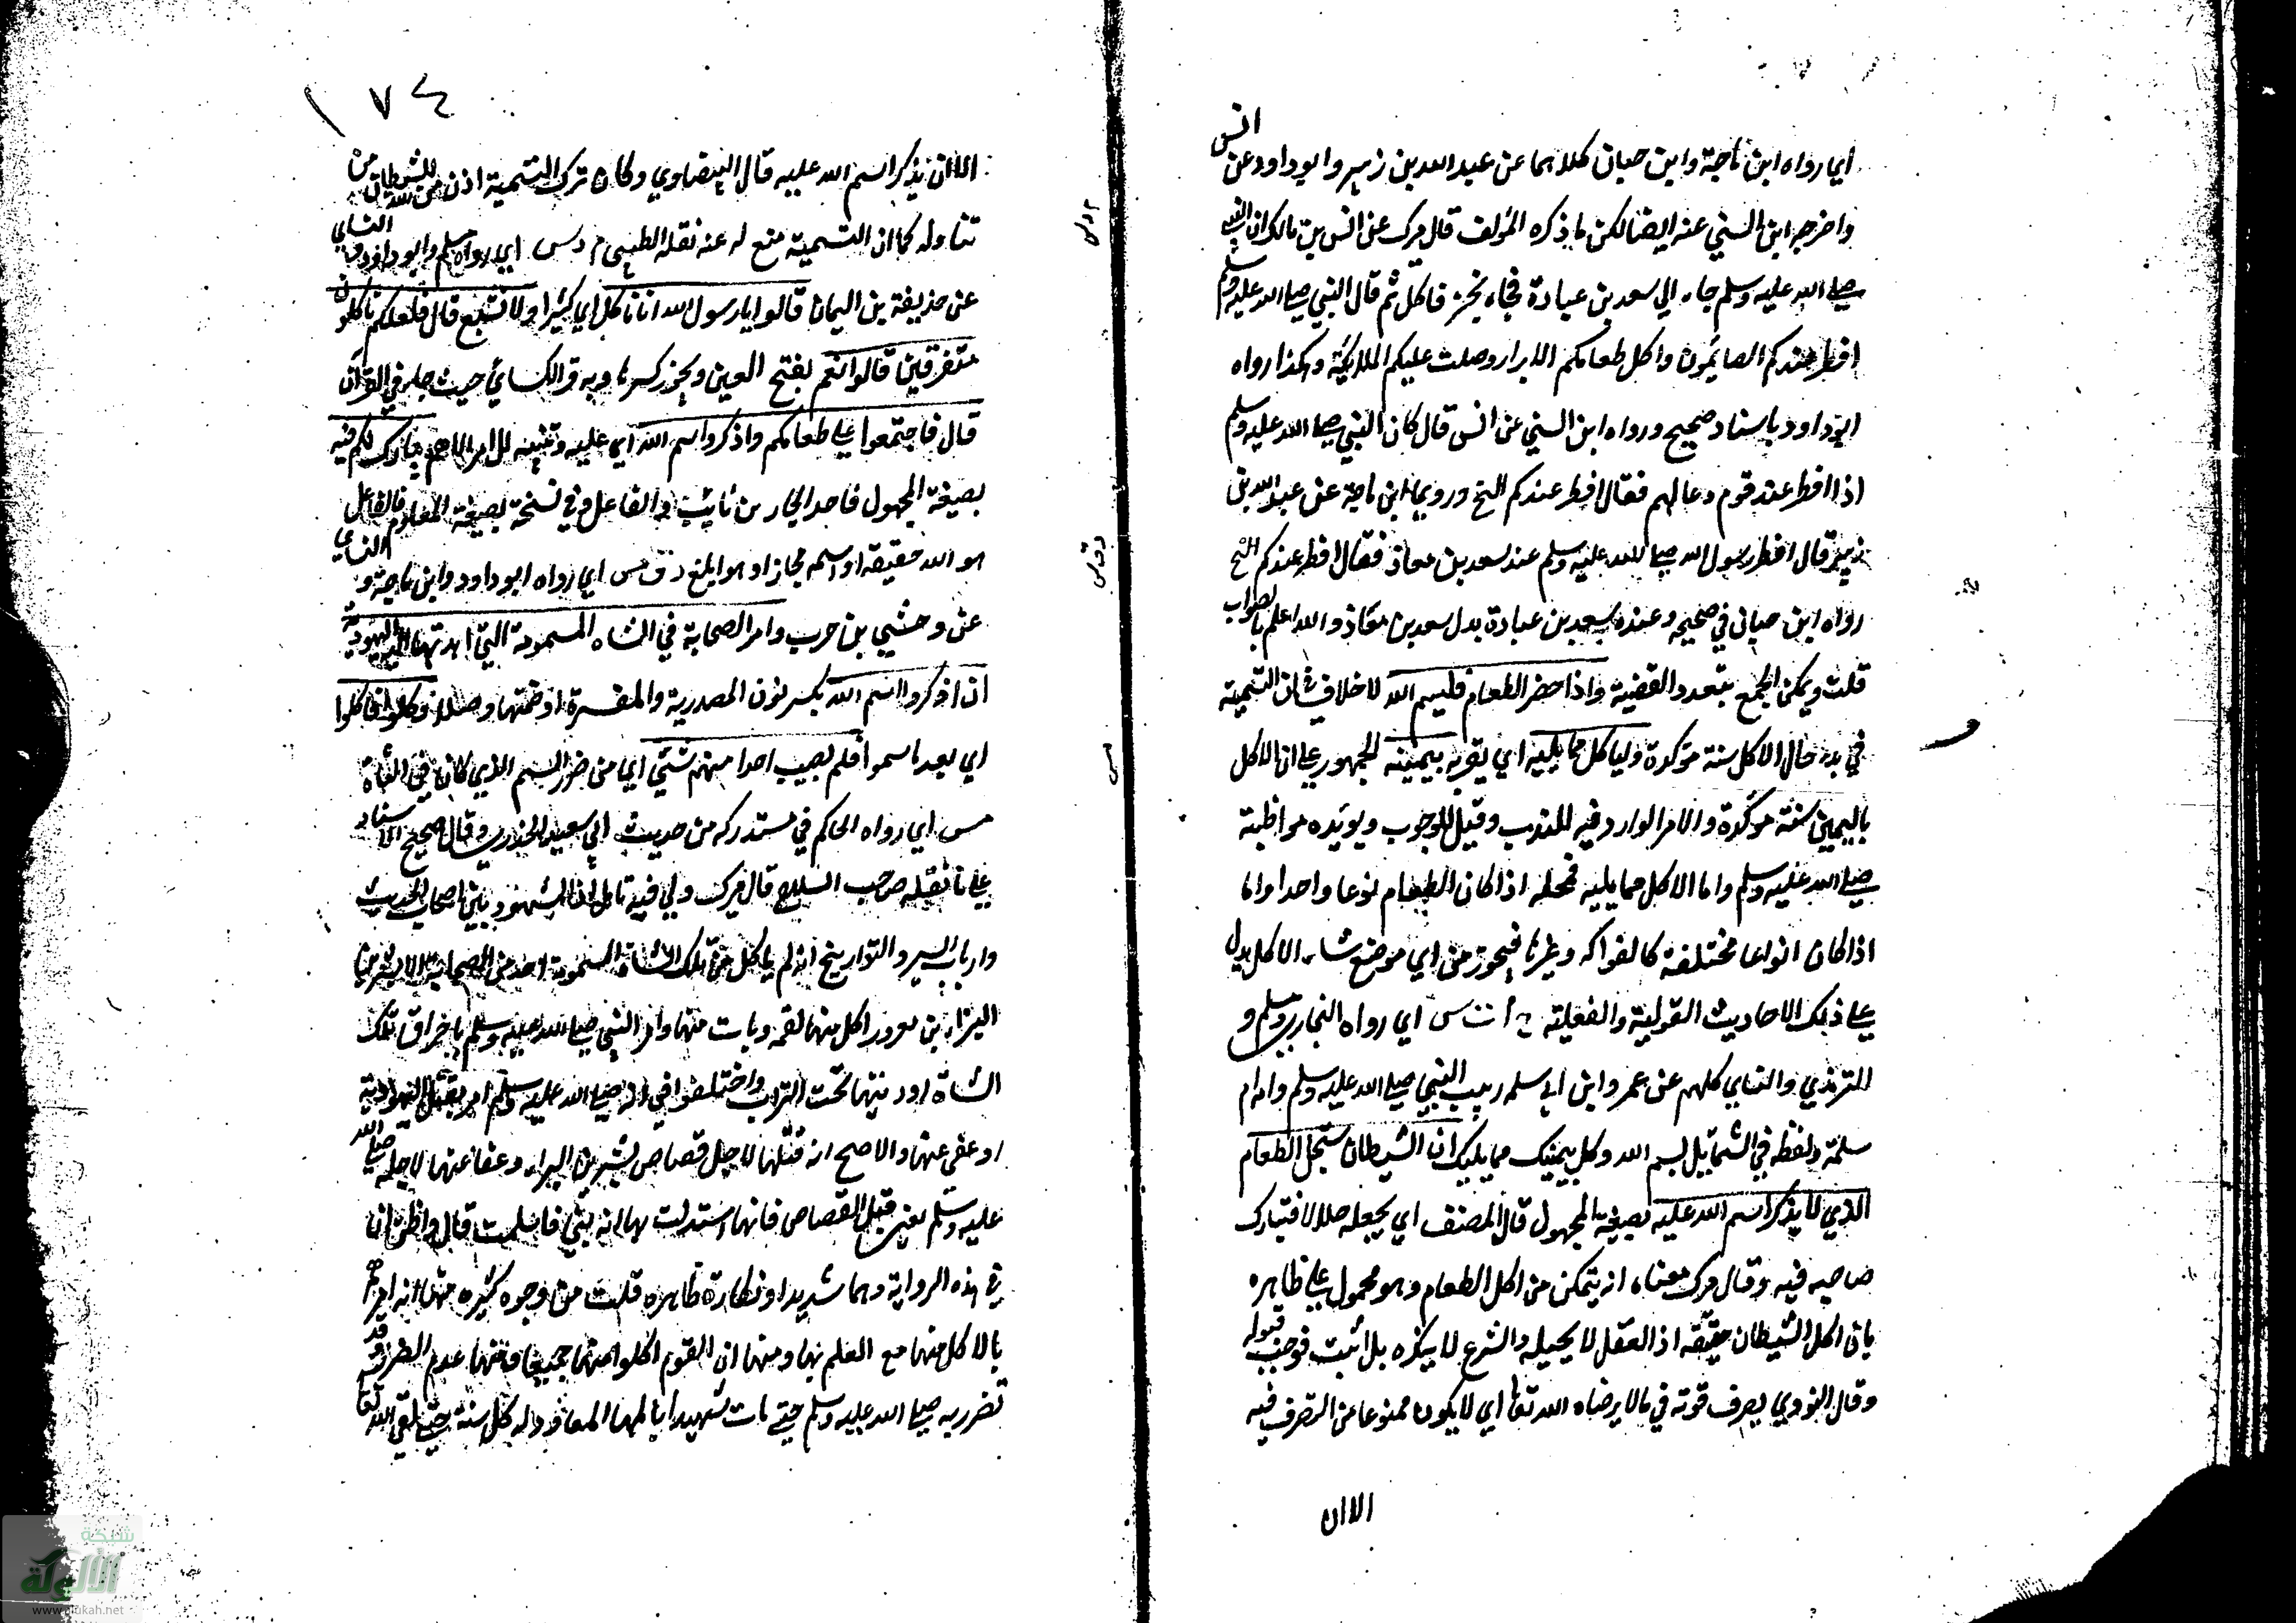 اي رواه ابن ماجة وابن حبان كلاهما عن عبد الله بن زبير وابو داود عن انس
واخرجه ابن السني عنه ايضا لكن ما ذكره المؤلف قال ميرك عن انس بن مالك ان النبي
صلى الله عليه وسلم جاء الى سعد بن عبادة فجاء بخبز فاكل ثم قال النبي صلى الله عليه وسلم
افطر عندكم الصايمون واكل طعامكم الابرار وصلت عليكم الملايكة وهكذا رواه
ابو داود باسناد صحيح ورواه ابن السني عن انس قال كان النبي صلى الله عليه وسلم
اذا افطر عند قوم دعا لهم فقال افطر عندكم الخ وروينا ابن ماجة عن عبد الله بن
زبير قال افطر رسول الله صلى الله عليه وسلم عند سعد بن معاذ فقال افطر عندكم الخ
رواه ابن حبان في صحيحه وعنده سعد بن عبادة بدل سعد بن معاذ والله اعلم بالصواب
قلت ويمكن الجمع بتعدد القضية واذا حضر الطعام فليسم الله لا خلاف في ان التسمية
في بدء حال الاكل سنة مؤكدة ولياكل مما يليه اي يقربه بيمينه الجمهور على ان الاكل
باليمين سنة مؤكدة والامر الوارد فيه للندب وقيل للوجوب ويؤيده مواظبته
صلى الله عليه وسلم واما الاكل مما يليه فمحله اذا كان الطعام نوعا واحدا واما
اذا كان انواعا مختلفة كالفواكه وغيرها فيجوز من اي موضع شاء الاكل يدل
على ذلك الاحاديث القولية والفعلية خ م ت س اي رواه البخاري ومسلم و
الترمذي والنساي كلهم عن عمرو ابن ابي سلمه ربيب النبي صلى الله عليه وسلم وامه ام
سلمة ولفظه في الشمايل بسم الله وكل بيمينك مما يليك ان الشيطان يستحل الطعام
الذي لا يذكر اسم الله عليه بصيغة المجهول قال المصنف اي يجعله حلالا فتبارك
صاحبه فيه وقال ميرك معناه انه يتمكن من اكل الطعام وهو محمول على ظاهره
بان اكل الشيطان حقيقة اذ العقل لا يحيله والشرع لا ينكره بل اثبت فوجب قبوله
وقال النووي يصرف قوته في ما لا يرضاه الله تعا اي لا يكون ممنوعا من التصرف فيه
الا ان
١٧٤
الا ان يذكر اسم الله عليه قال البيضاوي وكان ترك التسمية اذن من الله للشيطان من
تناوله كما ان التسمية منع له عنه نقله الطيبي م د س اي رواه مسلم وابو داود والنساي
عن حذيفة بن اليمان قالوا يا رسول الله انا ناكل اي كثيرا ولا نشبع قال فلعلكم تاكلون
متفرقين قالوا نعم بفتح العين ويجوز كسرها وبه قرا الكسائي حيث جاء في القرآن
قال فاجتمعوا على طعامكم واذكروا اسم الله اي عليه وتنبيه للامر الاهم يبارك لكم فيه
بصيغة المجهول فاحد الجارين نائب الفاعل وفي نسخة بصيغة المعلوم فالفاعل
هو الله حقيقة او اسمه مجازا وهو ابلغ د ق س اي رواه ابو داود وابن ماجة والنساي
عن وحشي بن حرب وامر الصحابة في الشاه المسمومة التي اهدتها اليه اليهودية
ان اذكروا اسم الله بكسر نون المصدرية والمفسرة او ضمتها وصلا وكلوا فاكلوا
اي بعد ما سموا فلم يصب احدا منهم شئي اي من ضرر السم الذي كان في الشاة
مس اي رواه الحاكم في مستدركه من حديث ابي سعيد الخدري وقال صحيح الاسناد
على ما نقله صاحب السلاح قال ميرك ولي فيه تامل اذ المشهور بين اصحاب الحديث
وارباب السير والتواريخ انه لم ياكل من تلك الشاة المسمومة احد من الصحابة الا بشر بن
البراء بن معرور اكل منها لقمة ومات منها وامر النبي صلى الله عليه وسلم باخراق تلك
الشاة او دفنها تحت التراب واختلفوا في انه صلى الله عليه وسلم امر بقتل اليهودية
او عفي عنها والاصح انه قتلها لاجل قصاص بشر بن البراء وعفا عنها لاجله صلى الله
عليه وسلم يعني قبل القصاص فانها استدلت بها انه نبي فاسلمت قال واظن ان
في هذه الرواية وهما شديدا ونكارة ظاهره قلت من وجوه كثيره منها انه امرهم
بالاكل منها مع العلم بها ومنها ان القوم اكلوا منها جميعا ومنها عدم الضرر وقد
تضرر به صلى الله عليه وسلم حتى مات شهيدا بالمها المعاود اله كل سنة حتى لقي الله تعا